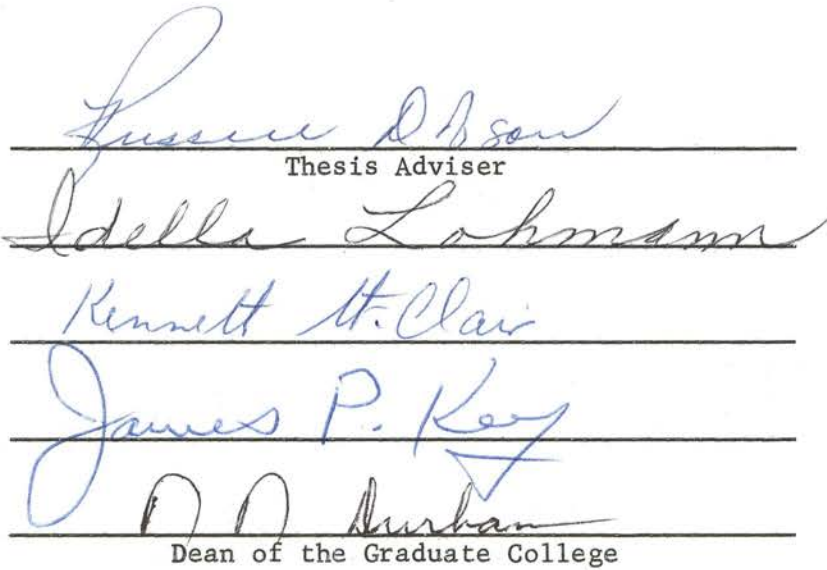 Russell Dobson
Thesis Adviser
Idella Lohmann
Kenneth St. Clair
James P. Key
N N Durham
Dean of the Graduate College